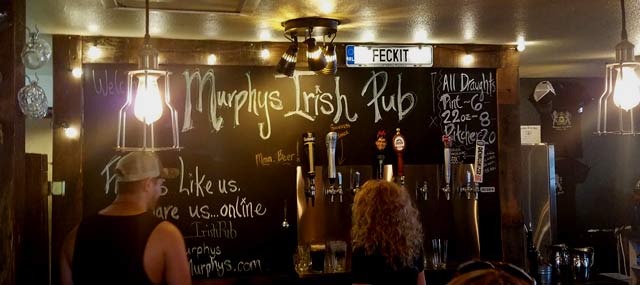 FECKIT
Welc
Murphys Irish Pub
All Draughts
Pint - 6
22oz - 8
Pitcher 20
Man. Beer
Like us.
are us...online
IrishPub
urphys
Murphys.com